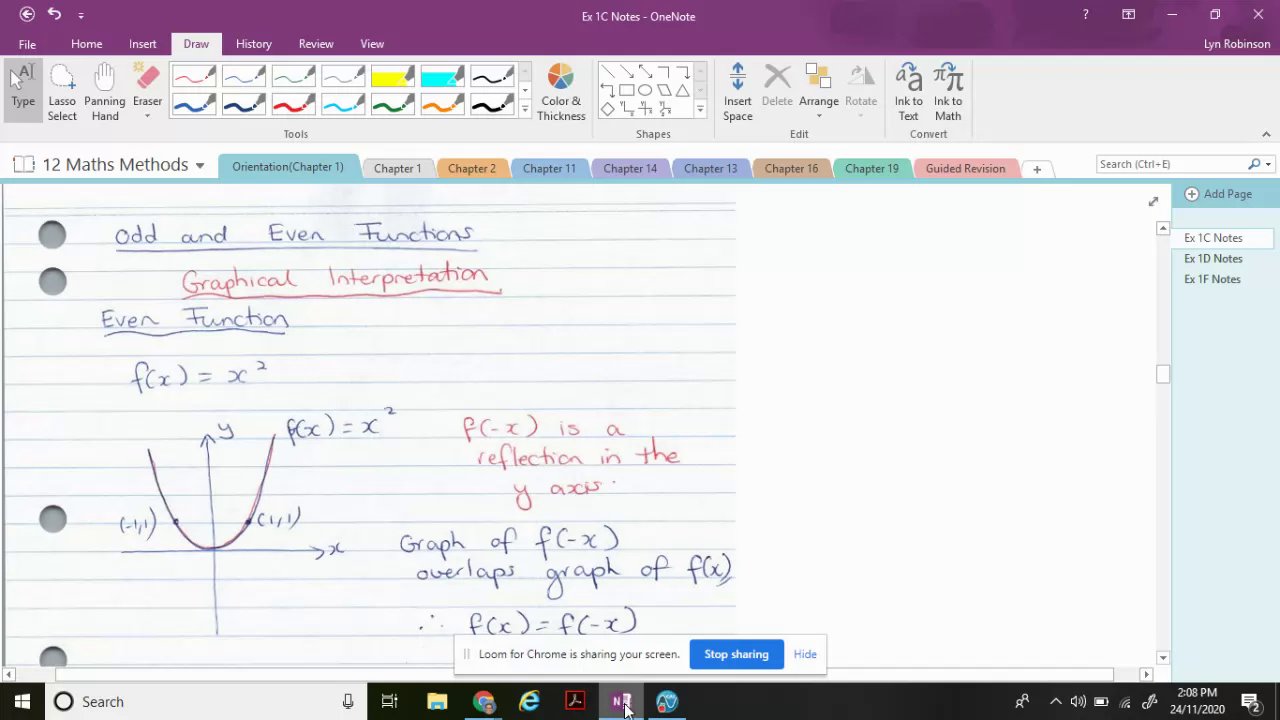 Ex 1C Notes - OneNote
?
File Home Insert Draw History Review View
Lyn Robinson
Type
Lasso Select
Panning Hand
Eraser
Color & Thickness
Insert Space
Delete
Arrange
Rotate
Ink to Text
Ink to Math
Tools
Shapes
Edit
Convert
12 Maths Methods
Orientation(Chapter 1) Chapter 1 Chapter 2 Chapter 11 Chapter 14 Chapter 13 Chapter 16 Chapter 19 Guided Revision
Search (Ctrl+E)
Add Page
Ex 1C Notes
Ex 1D Notes
Ex 1F Notes
Odd and Even Functions
Graphical Interpretation
Even Function
f(x) = x²
y
f(x) = x²
f(-x) is a
reflection in the
y axis.
(-1,1)
(1,1)
x
Graph of f(-x)
overlaps graph of f(x)
∴ f(x) = f(-x)
Loom for Chrome is sharing your screen. Stop sharing Hide
Search
2:08 PM
24/11/2020
2